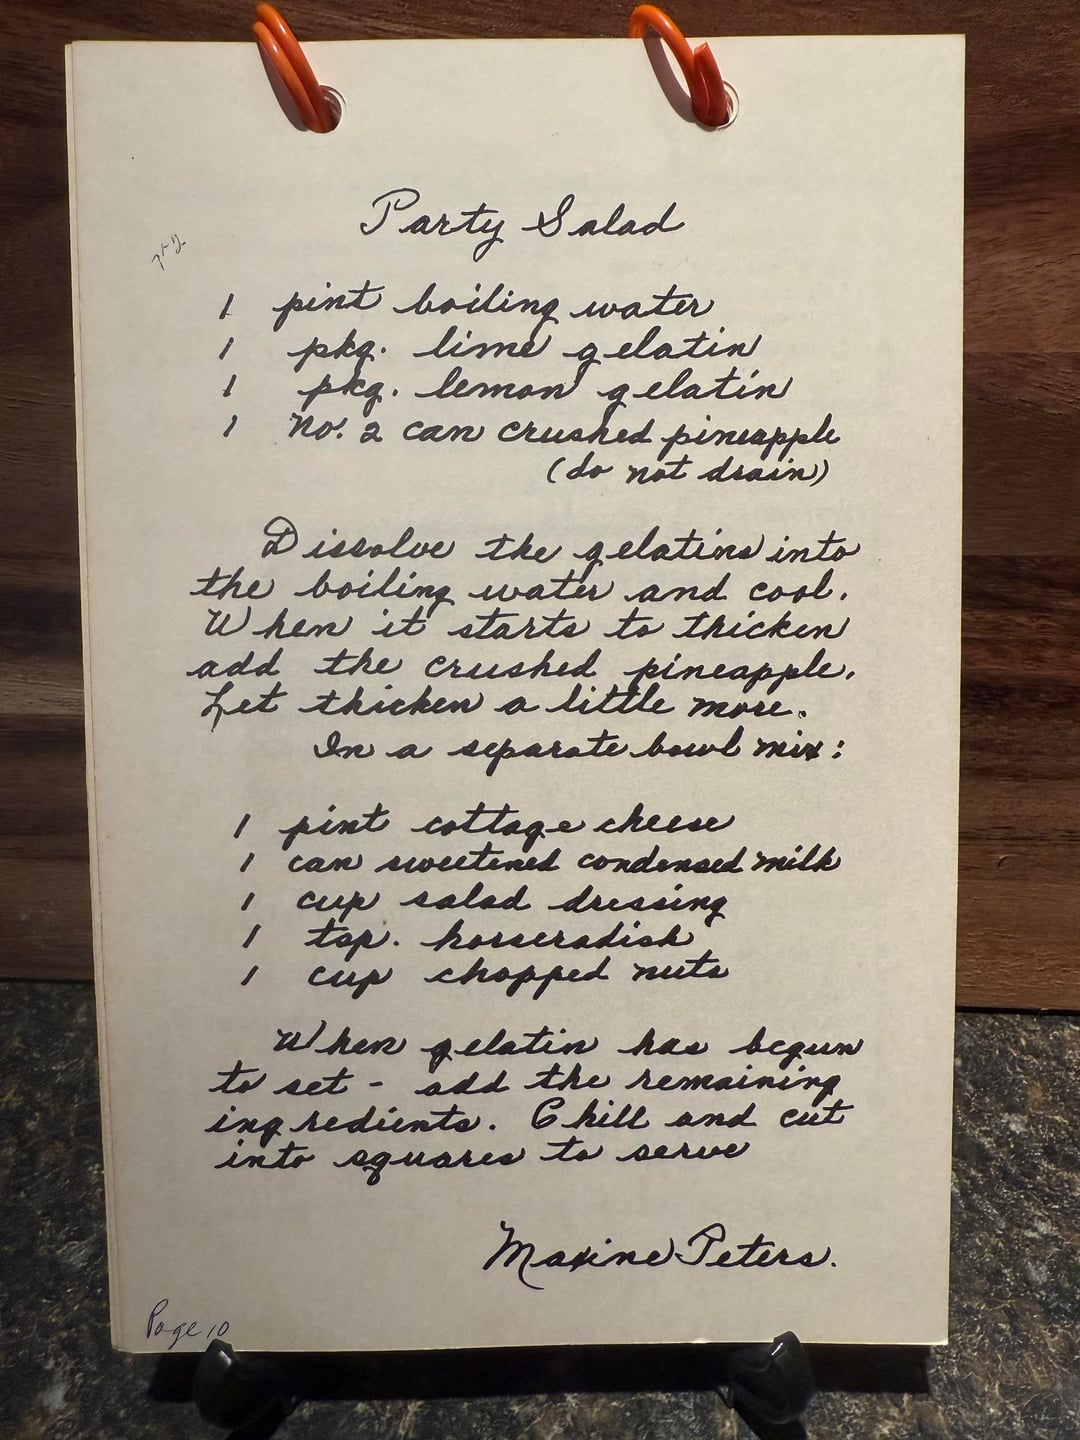 Party Salad
1 pint boiling water
1 pkg. lime gelatin
1 pkg. lemon gelatin
1 No. 2 can crushed pineapple
(do not drain)
Dissolve the gelatins into
the boiling water and cool.
When it starts to thicken
add the crushed pineapple.
Let thicken a little more.
In a separate bowl mix:
1 pint cottage cheese
1 can sweetened condensed milk
1 cup salad dressing
1 tsp. horseradish
1 cup chopped nuts
When gelatin has begun
to set - add the remaining
ingredients. Chill and cut
into squares to serve
Maxine Peters.
Page 10